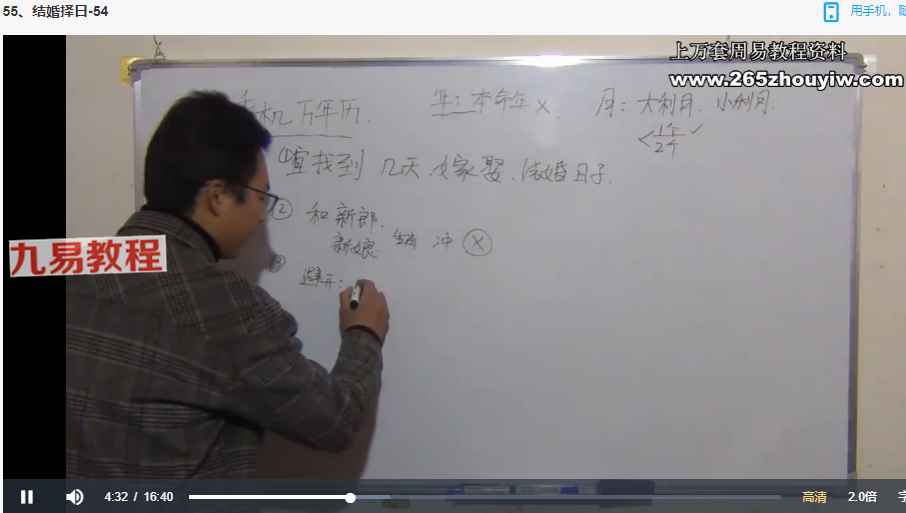 55、结婚择日-54
用手机，随
上万套周易教程资料
www.265zhouyiw.com
机万年历.
年:本命年 x
月:大利月、小利月.
查找到 几天.嫁娶.结婚日子.
② 和新郎.
新娘. 冲 X
九易教程
避开:
4:32 / 16:40
高清 2.0倍 字